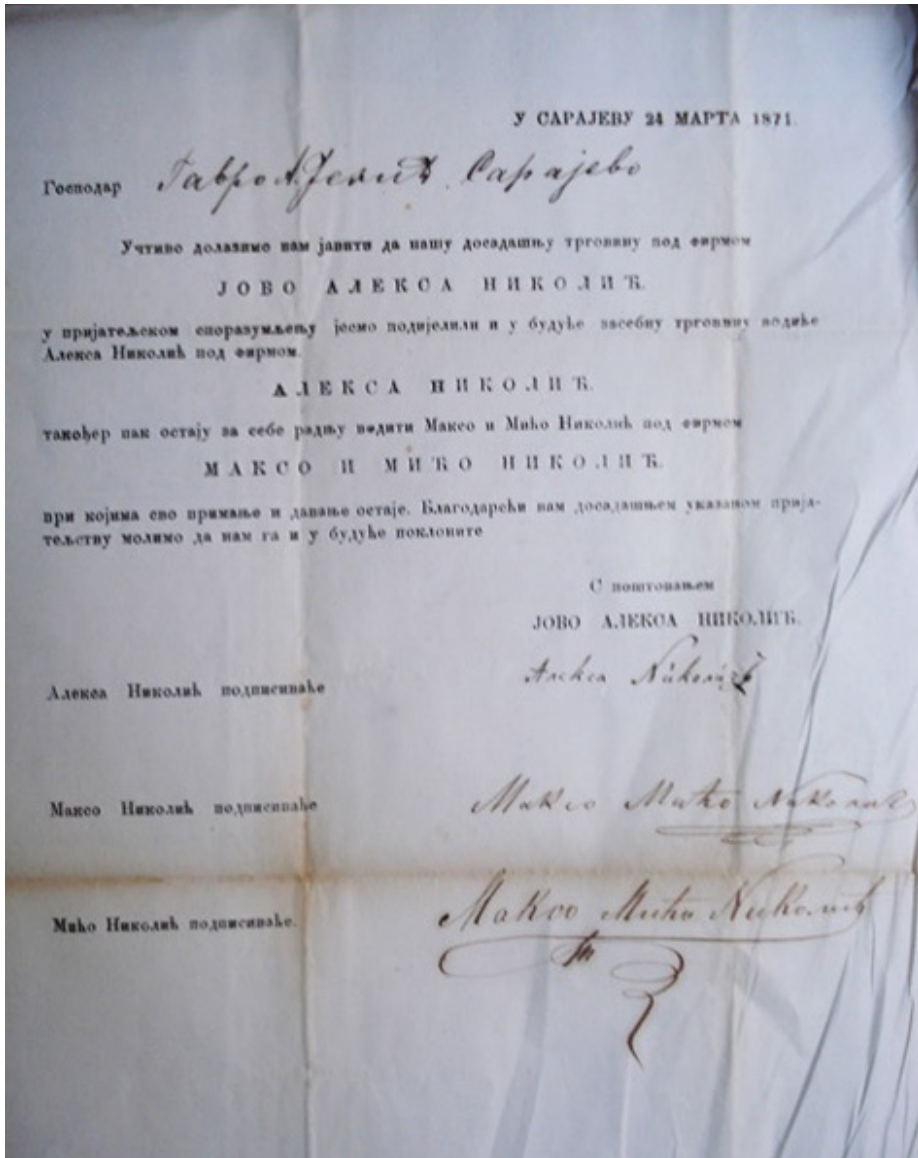 У САРАЈЕВУ 24 МАРТА 1871.
Господар Гавро А. Јелић Сарајево
Учтиво долазимо вам јавити да нашу досадашњу трговину под фирмом
ЈОВО АЛЕКСА НИКОЛИЋ.
у пријатељском споразумљењу јесмо подијелили и у будуће засебну трговину водиће
Алекса Николић под фирмом.
АЛЕКСА НИКОЛИЋ.
такођер пак остају за себе радњу водити Максо и Мићо Николић под фирмом
МАКСО И МИЋО НИКОЛИЋ.
при којима сво примање и давање остаје. Благодарећи вам досадашњем указаном прија-
тељству молимо да нам га и у будуће поклоните
С поштовањем
ЈОВО АЛЕКСА НИКОЛИЋ.
Алекса Николић подписиваће Алекса Николић
Максо Николић подписиваће Максо Мићо Николић
Мићо Николић подписиваће. Максо Мићо Николић